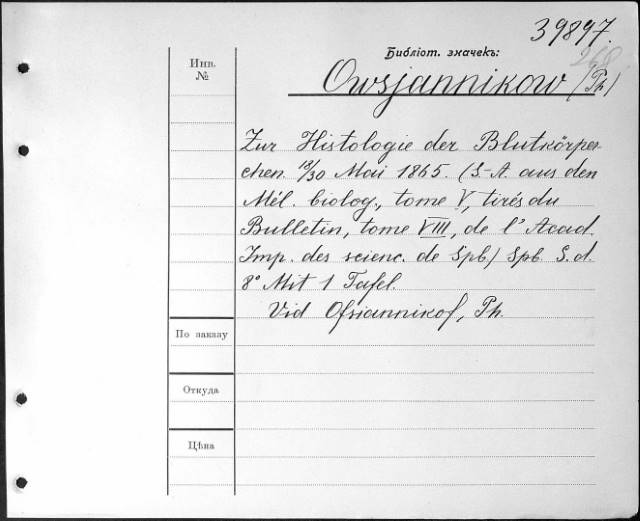 39897.
Библіот. значекъ:
Инв.
№
Owsjannikow (Ph.)
Zur Histologie der Blutkörper-
chen. 18/30 Mai 1865. (S.-A. aus den
Mél. biolog., tome V, tirés du
Bulletin, tome VIII, de l'Acad.
Imp. des scienc. de Spb.) Spb. S. d.
8° Mit 1 Tafel.
Vid Ofsiannikof, Ph.
По заказу
Откуда
Цѣна